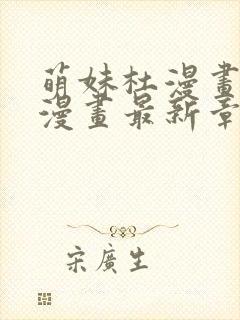 萌妹杜漫畫
漫畫最新章
宋廣生